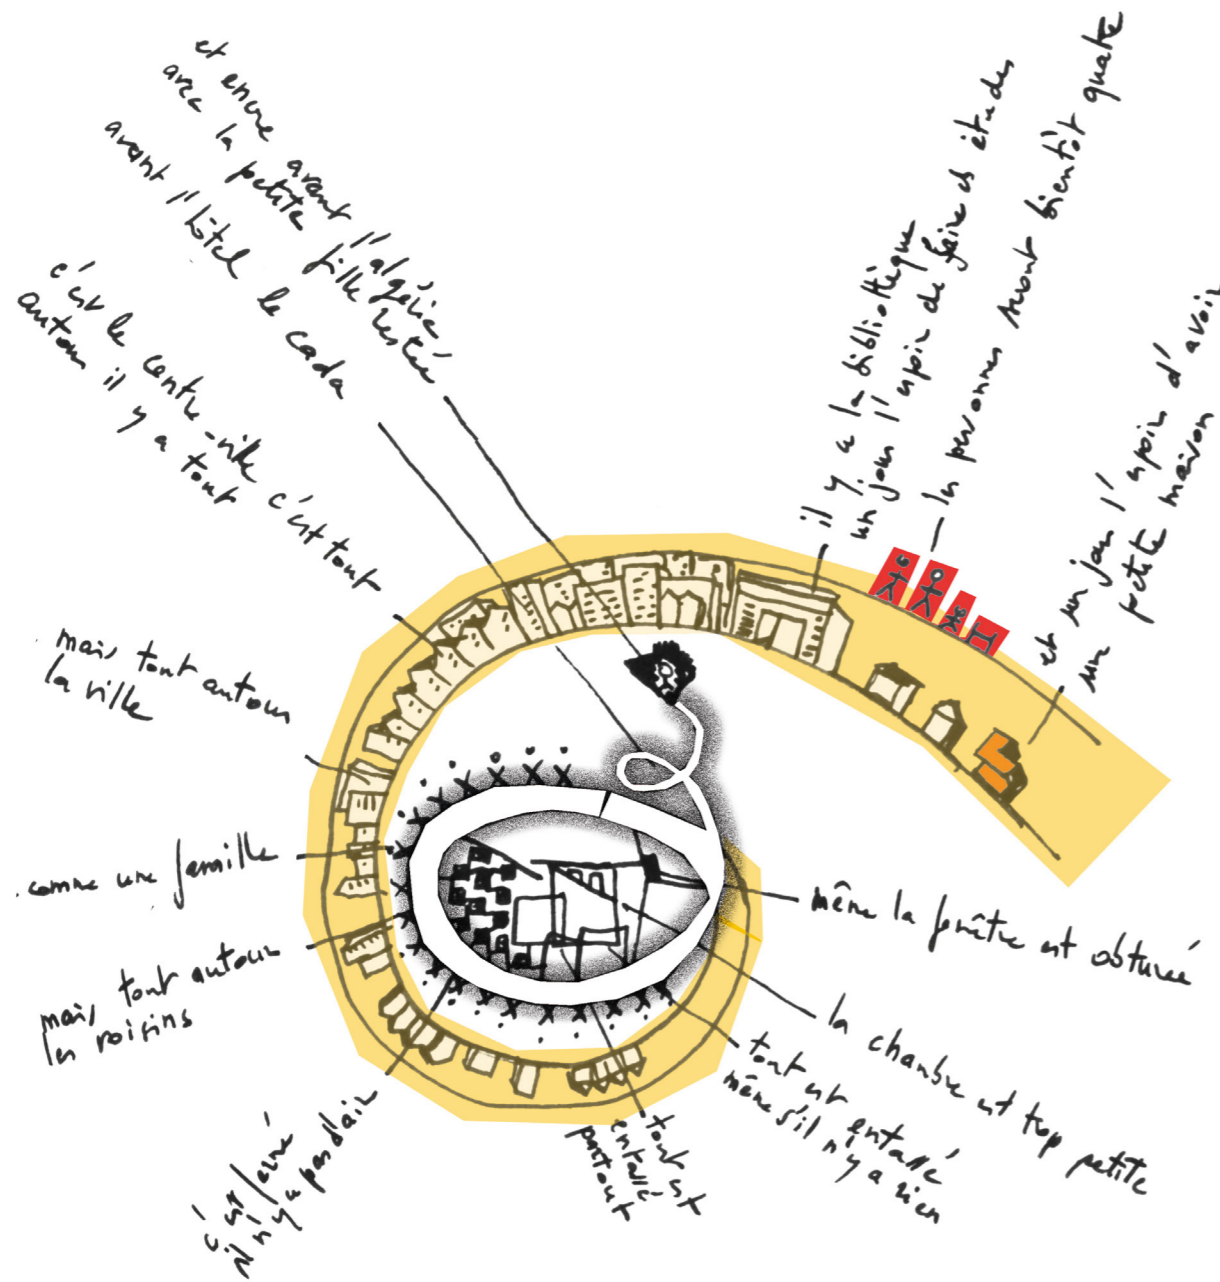 et encore avant l'algérie
avec la petite fille restée
avant l'hôtel le cada
c'est le centre-ville c'est tout
autour il y a tout
mais tout autour
la ville
comme une famille
mais tout autour
les voisins
c'est fermé
il n'y a pas d'air
tout est
entassé
partout
tout est entassé
même s'il n'y a rien
la chambre est trop petite
même la fenêtre est obturée
il y a la bibliothèque
un jour l'espoir de faire des études
les personnes seront bientôt quatre
et un jour l'espoir d'avoir
une petite maison